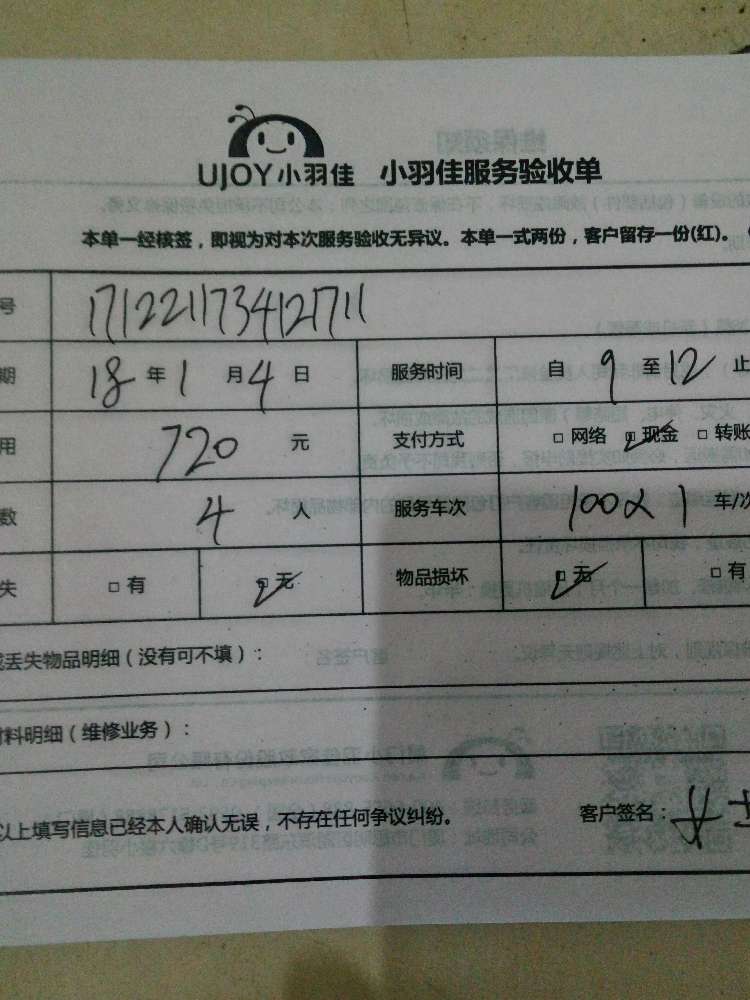 UJOY小羽佳 小羽佳服务验收单
本单一经核签，即视为对本次服务验收无异议。本单一式两份，客户留存一份(红)。
号 1712211734121711
期 18年1月4日 服务时间 自9至12止
用 720元 支付方式 □网络 □现金 □转账
数 4人 服务车次 100×1 车/次
失 □有 □无 物品损坏 □无 □有
丢失物品明细（没有可不填）：
材料明细（维修业务）：
以上填写信息已经本人确认无误，不存在任何争议纠纷。 客户签名：